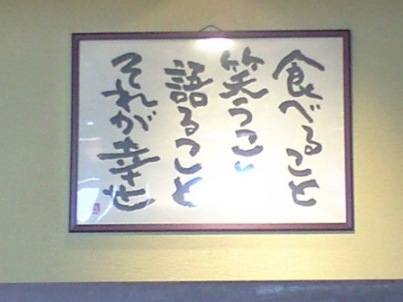 食べること
笑うこと
語ること
それが幸せ